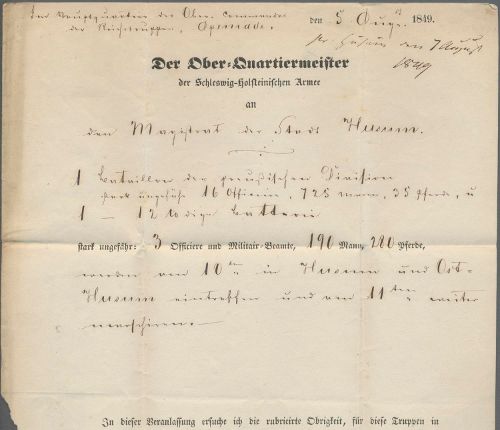 Im Hauptquartier des Ober-Commandos
der Reichstruppen, Apenrade. den 5 Augst 1849.
pr. Husum den 7 August
1849
Der Ober-Quartiermeister
der Schleswig-Holsteinischen Armee
an
den Magistrat der Stadt Husum.
1 Bataillon der preußischen Division
stark ungefähr 16 Officiere, 725 Mann, 35 Pferde, u
1 — 12 pfdige Batterie
stark ungefähr: 3 Officiere und Militair-Beamte, 190 Mann, 200 Pferde,
werden am 10ten in Husum und Ost-
Husum eintreffen und am 11ten weiter
marschiren.—
In dieser Veranlassung ersuche ich die rubricirte Obrigkeit, für diese Truppen in